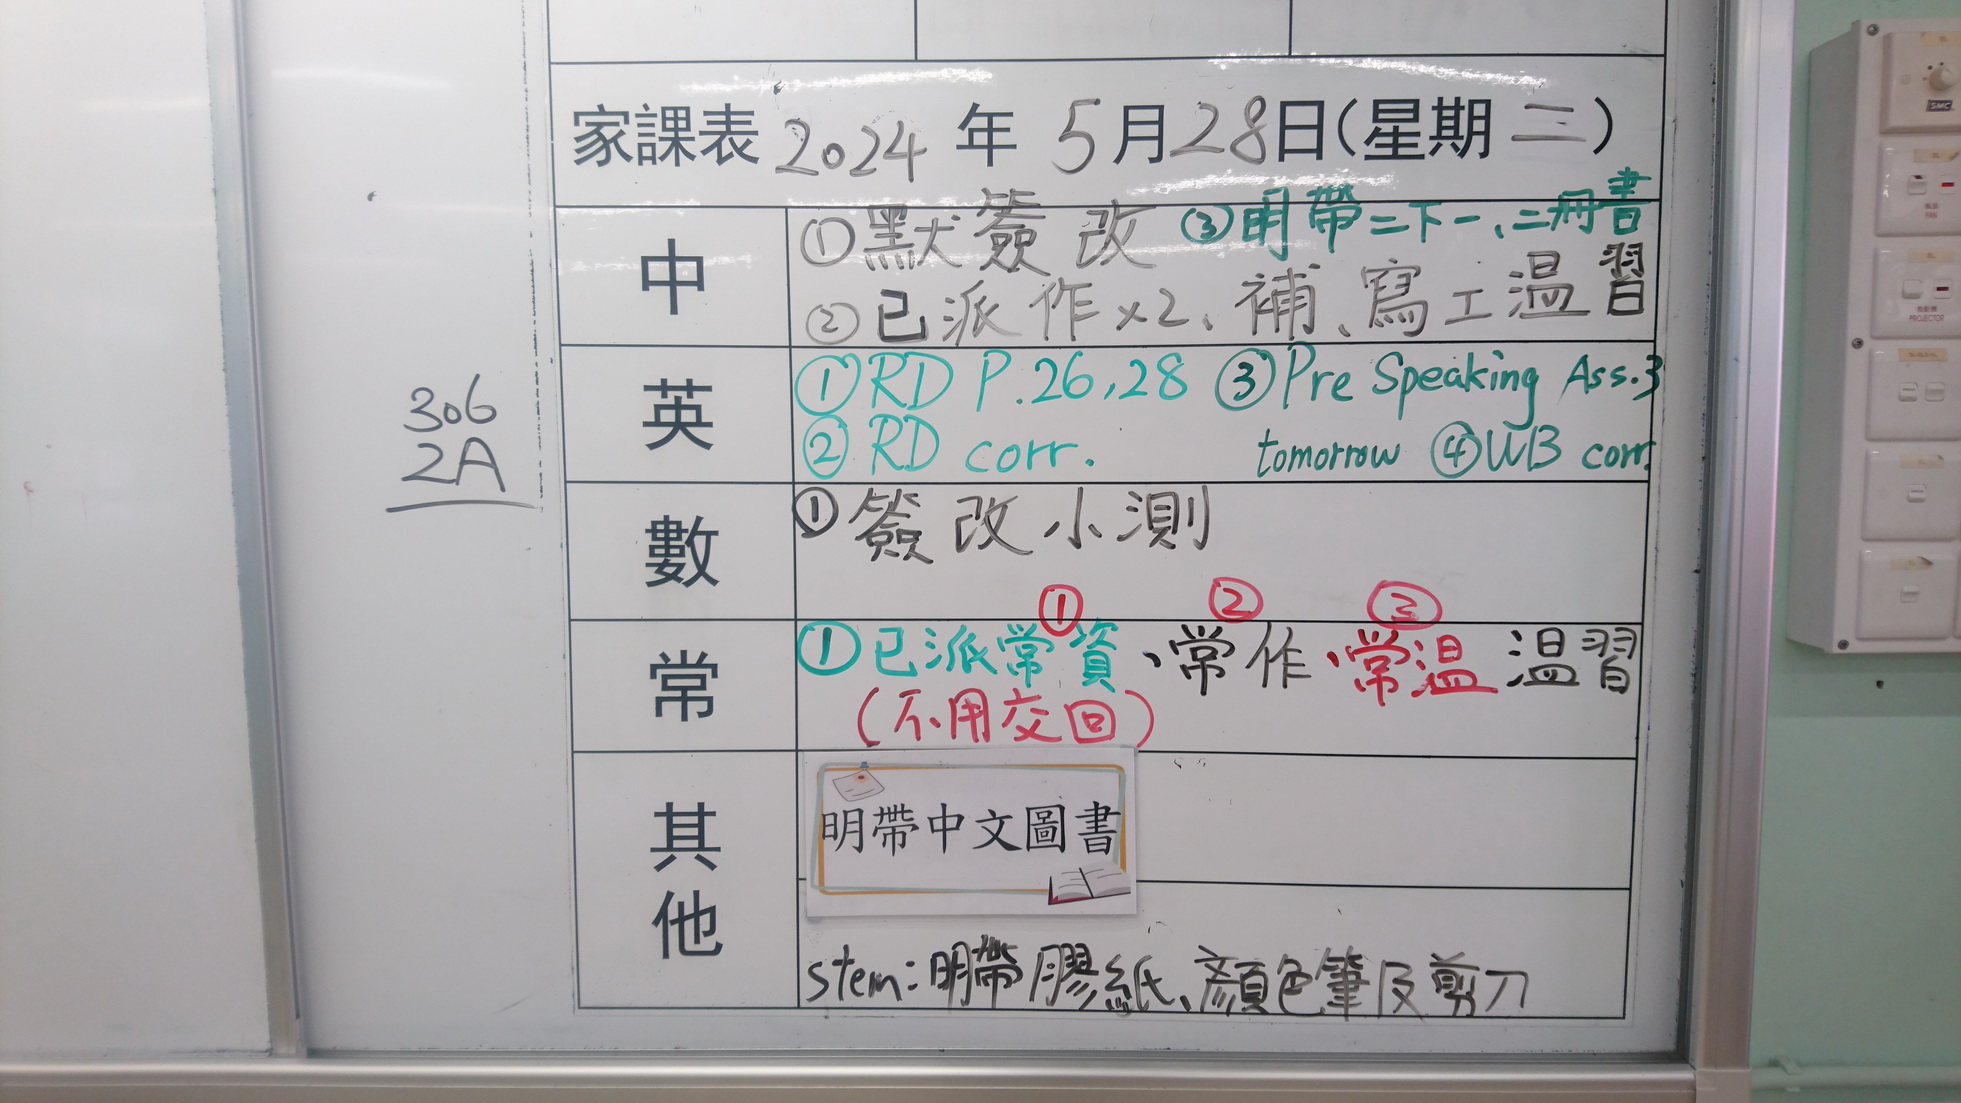 家課表 2024 年 5 月 28 日(星期 二)
中
①默簽改 ③明帶二下一、二冊書
②已派作x2、補、寫工溫習
306
2A
英
①RD P.26,28 ③Pre Speaking Ass.3
②RD corr. tomorrow ④WB corr.
數
①簽改小測
① ② ③
常
①已派常資、常作、常溫 溫習
(不用交回)
其他
明帶中文圖書
stem:明帶膠紙、顏色筆及剪刀
SMC
PROJECTOR